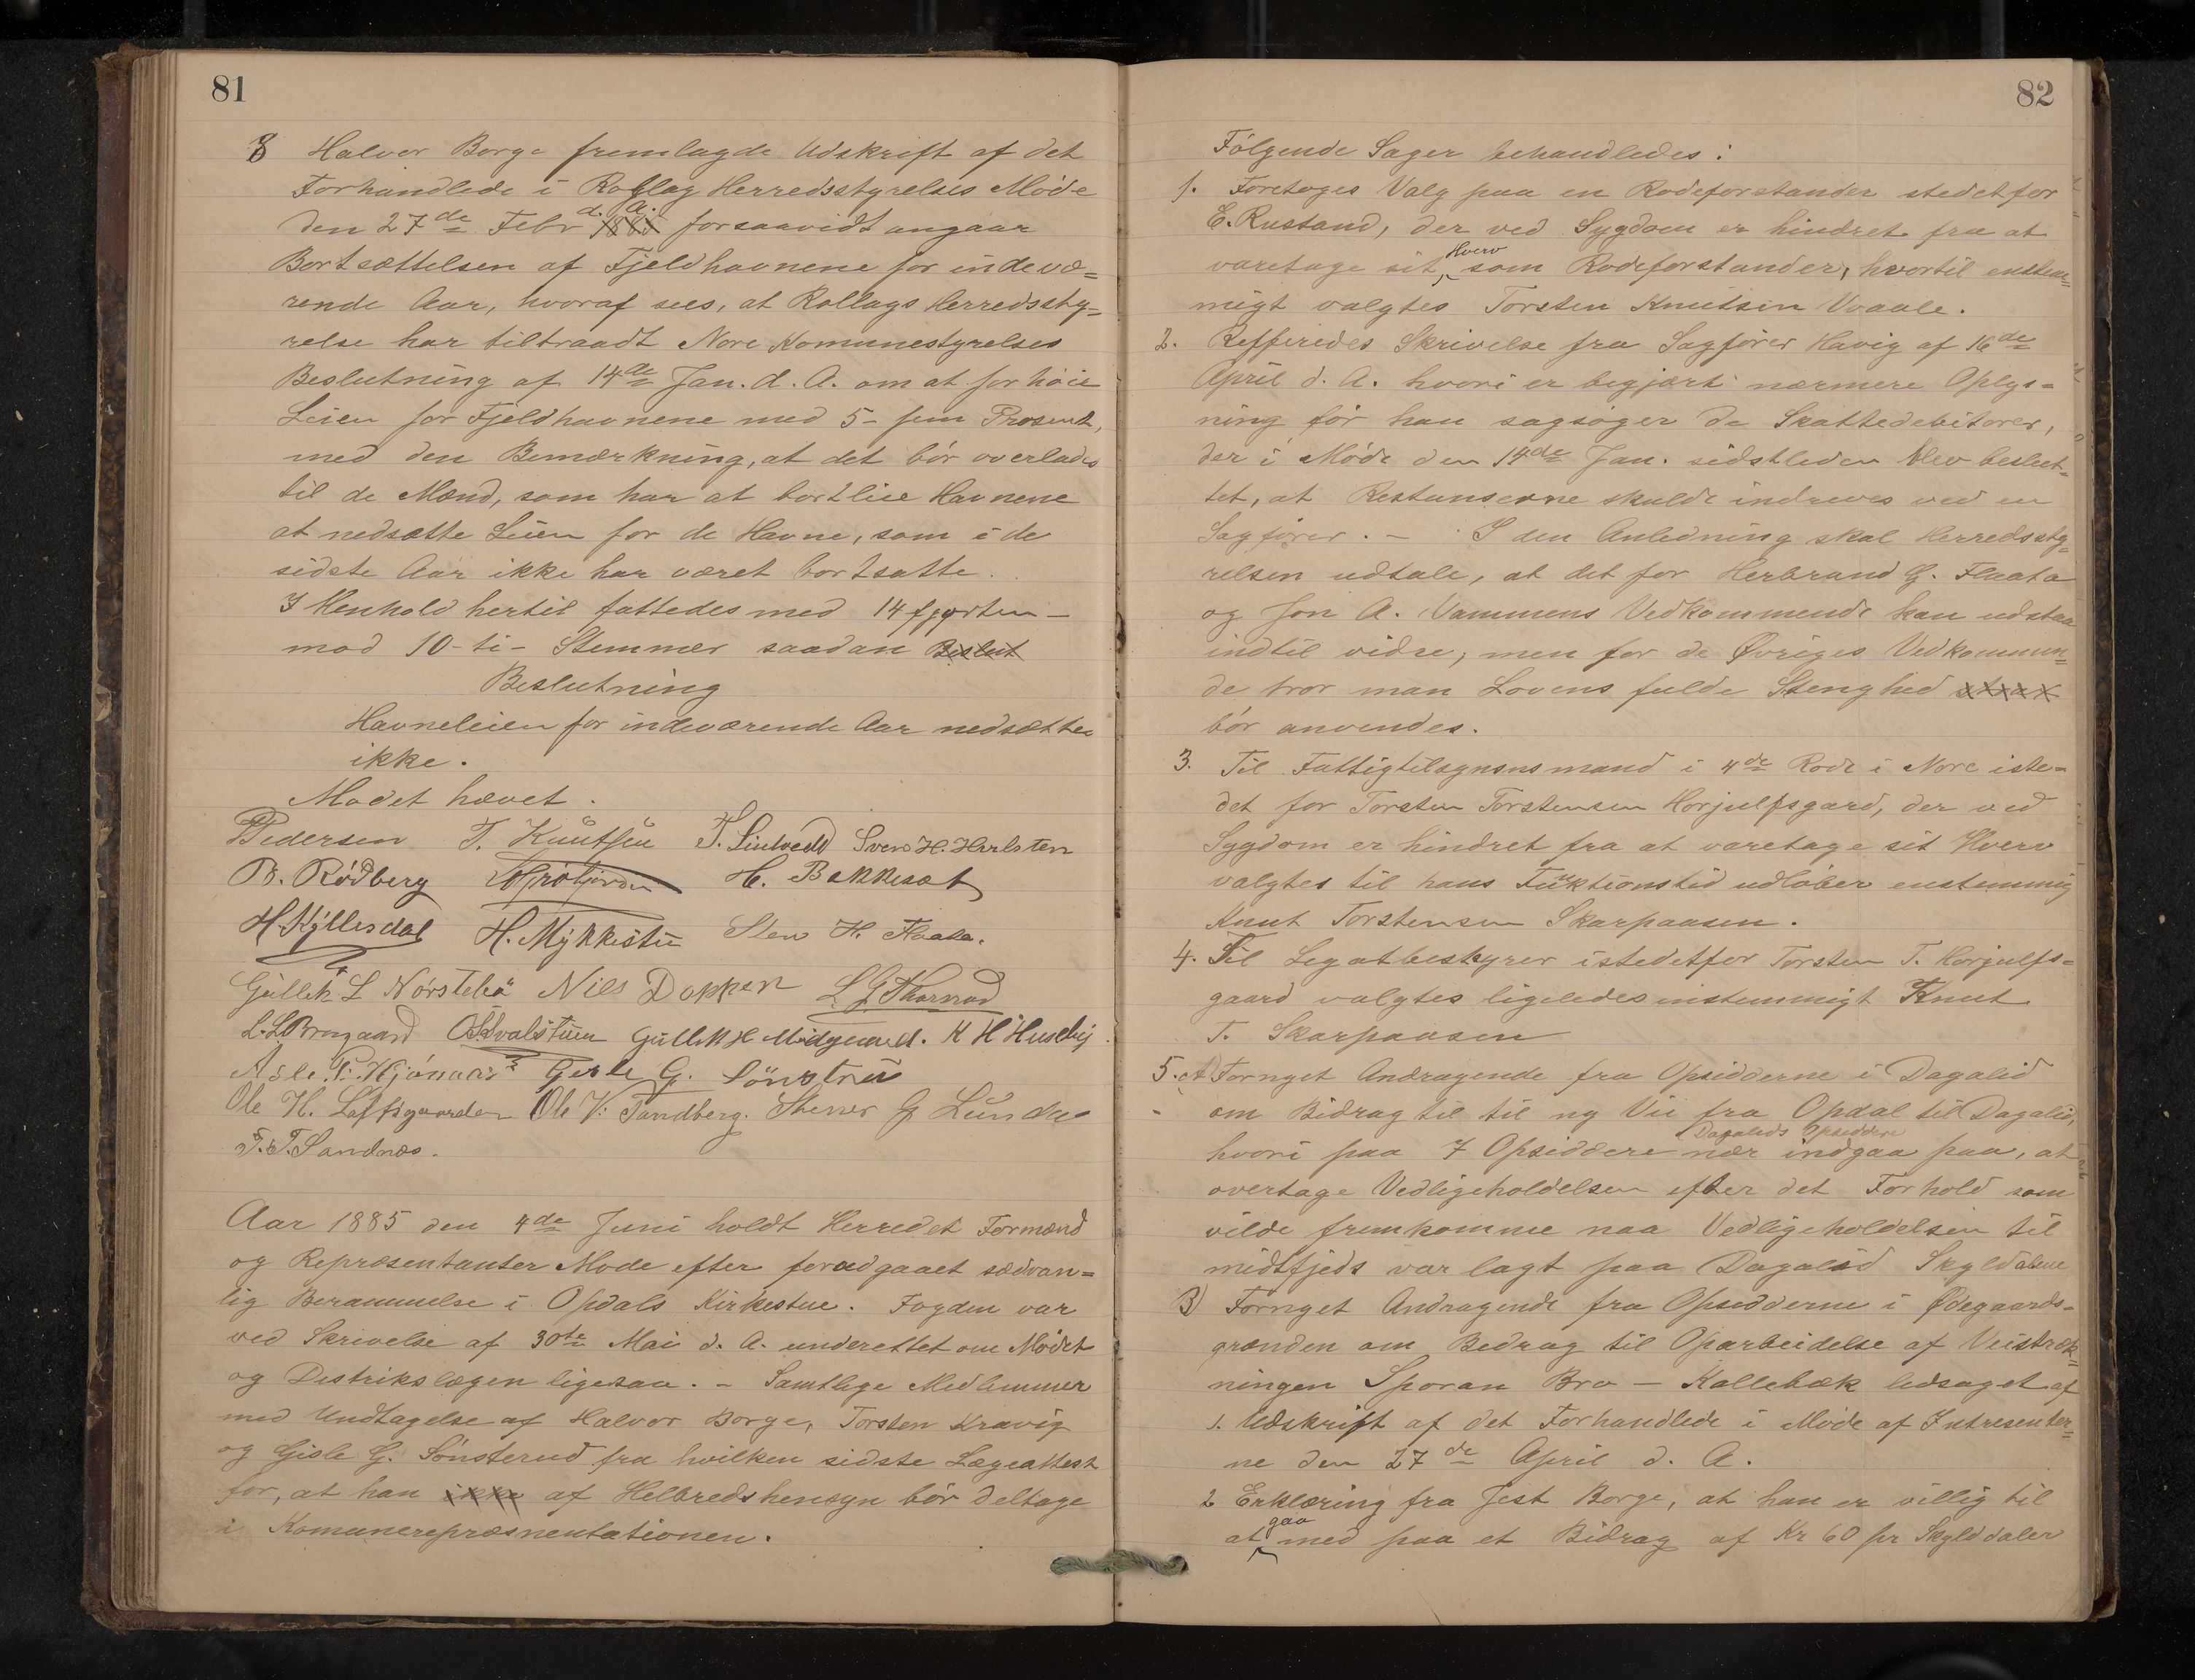 81
8 Halvor Borge fremlagde Udskrift af det
Forhandlede i Rollag Herredsstyrelses Møde
den 27de Febr d. A. forsaavidt angaar
Bortsættelsen af Fjeldhavnene for indevæ=
rende Aar, hvoraf sees, at Rollags Herredssty=
relse har tiltraadt Nore Komunestyrelses
Beslutning af 14de Jan. d. A. om at forhøie
Leien for Fjeldhavnene med 5 - fem Prosent,
med den Bemærkning, at det bør overlades
til de Mænd, som har at bortleie Havnene
at nedsætte Leien for de Havne, som i de
sidste Aar ikke har været bortsatte.
I Henhold hertil fattedes med 14 fjorten -
mod 10 - ti - Stemmer saadan Beslut
Beslutning
Havneleien for indeværende Aar nedsættes
ikke.
Mødet hævet.
Pedersen T. Knutsen T. Sev Sven H. Harlsten
B. Rødberg H. Bakkesat
H. Kyllesdal H. Mykkestu Sten H. Flaata.
Gullik L Nørstebø Nils Dokken L G Thornrud
L. L. Brogaard O. S. Svalstuen Gullik H Midgaard. K H Huseby
Asle Gisle G. Sønstrud
Ole H. Loftsgaarden Ole V. Tandberg. Stener G Lunde
T. T. Sandnæs.
Aar 1885 den 4de Juni holdt Herredet Formænd
og Repræsentanter Møde efter foradgaaet sædvan=
lig Berammelse i Opdals Kirkestue. Fogden var
ved Skrivelse af 30te Mai d. A. underettet om Mødet
og Destrikslægen ligesaa. - Samtlige Medlemmer
med Undtagelse af Halvor Borge, Torsten Kravig
og Gisle G. Sønsterud fra hvilken sidste Lægeattest
for, at han ikke af Helbredshensyn bør deltage
i Komunerepræsnentationen.
82
Følgende Sager behandledes:
1. Foretoges Valg paa en Rodeforstander stedetfor
E. Rustand, der ved Sygdom er hindret fra at
varetage sit Hverv som Rodeforstander, hvortil enstem=
migt valgtes Torsten Knutsen Vraale.
2. Refferedes Skrivelse fra Sagfører Havig af 16de
April d. A. hvori er begjært nærmere Oplys=
ning før han sagsøger de Skattedebitorer,
der i Møde den 14de Jan. sidstleden blev beslut=
tet, at Restanserne skulde indreves ved en
Sagfører. - I den Anledning skal Herredssty=
relsen udtale, at det for Herbrand G. Flaata
og Jon A. Vammens Vedkommende kan udstaa
indtil vidre, men for de Øvriges Vedkommen=
de tror man Lovens fulde Stenghed strax
bør anvendes.
3. Til Fattigtilsynsnsmand i 4de Rode i Nore iste=
det for Torsten Torstensen Horjulfsgard, der ved
Sygdom er hindret fra at varetage sit Hverv
valgtes til hans Funktionstid udløber enstemmig
Knut Torstensen Skarpaasen.
4. Til Legatbestyrer istedetfor Torsten T. Horjulfs=
gaard valgtes ligeledes instemmigt Knut
T. Skarpaasen
5. A Fornyet Andragende fra Opsidderne i Dagalid
om Bidrag til til ny Vei fra Opdal til Dagalid,
hvori paa 7 Opsiddere nær Dagalids Opsiddere indgaa paa, at
overtage Vedligeholdelsen efter det Forhold som
vilde fremkomme naa Vedligeholdelsen til
midtfjeds var lagt paa Dagalid Skyld alene
B) Fornyet Andragende fra Opsidderne i Ødegaards=
grænden om Bedrag til Oparbeidelse af Veistræk=
ningen Sporan Bro - Kallebæk ledsaget af
1. Udskrift af det Forhandlede i Møde af Intresenter=
ne den 27de April d. A.
2 Erklæring fra Jest Borge, at han er villig til
at gaa med paa et Bidrag af Kr 60 pr Skylddaler